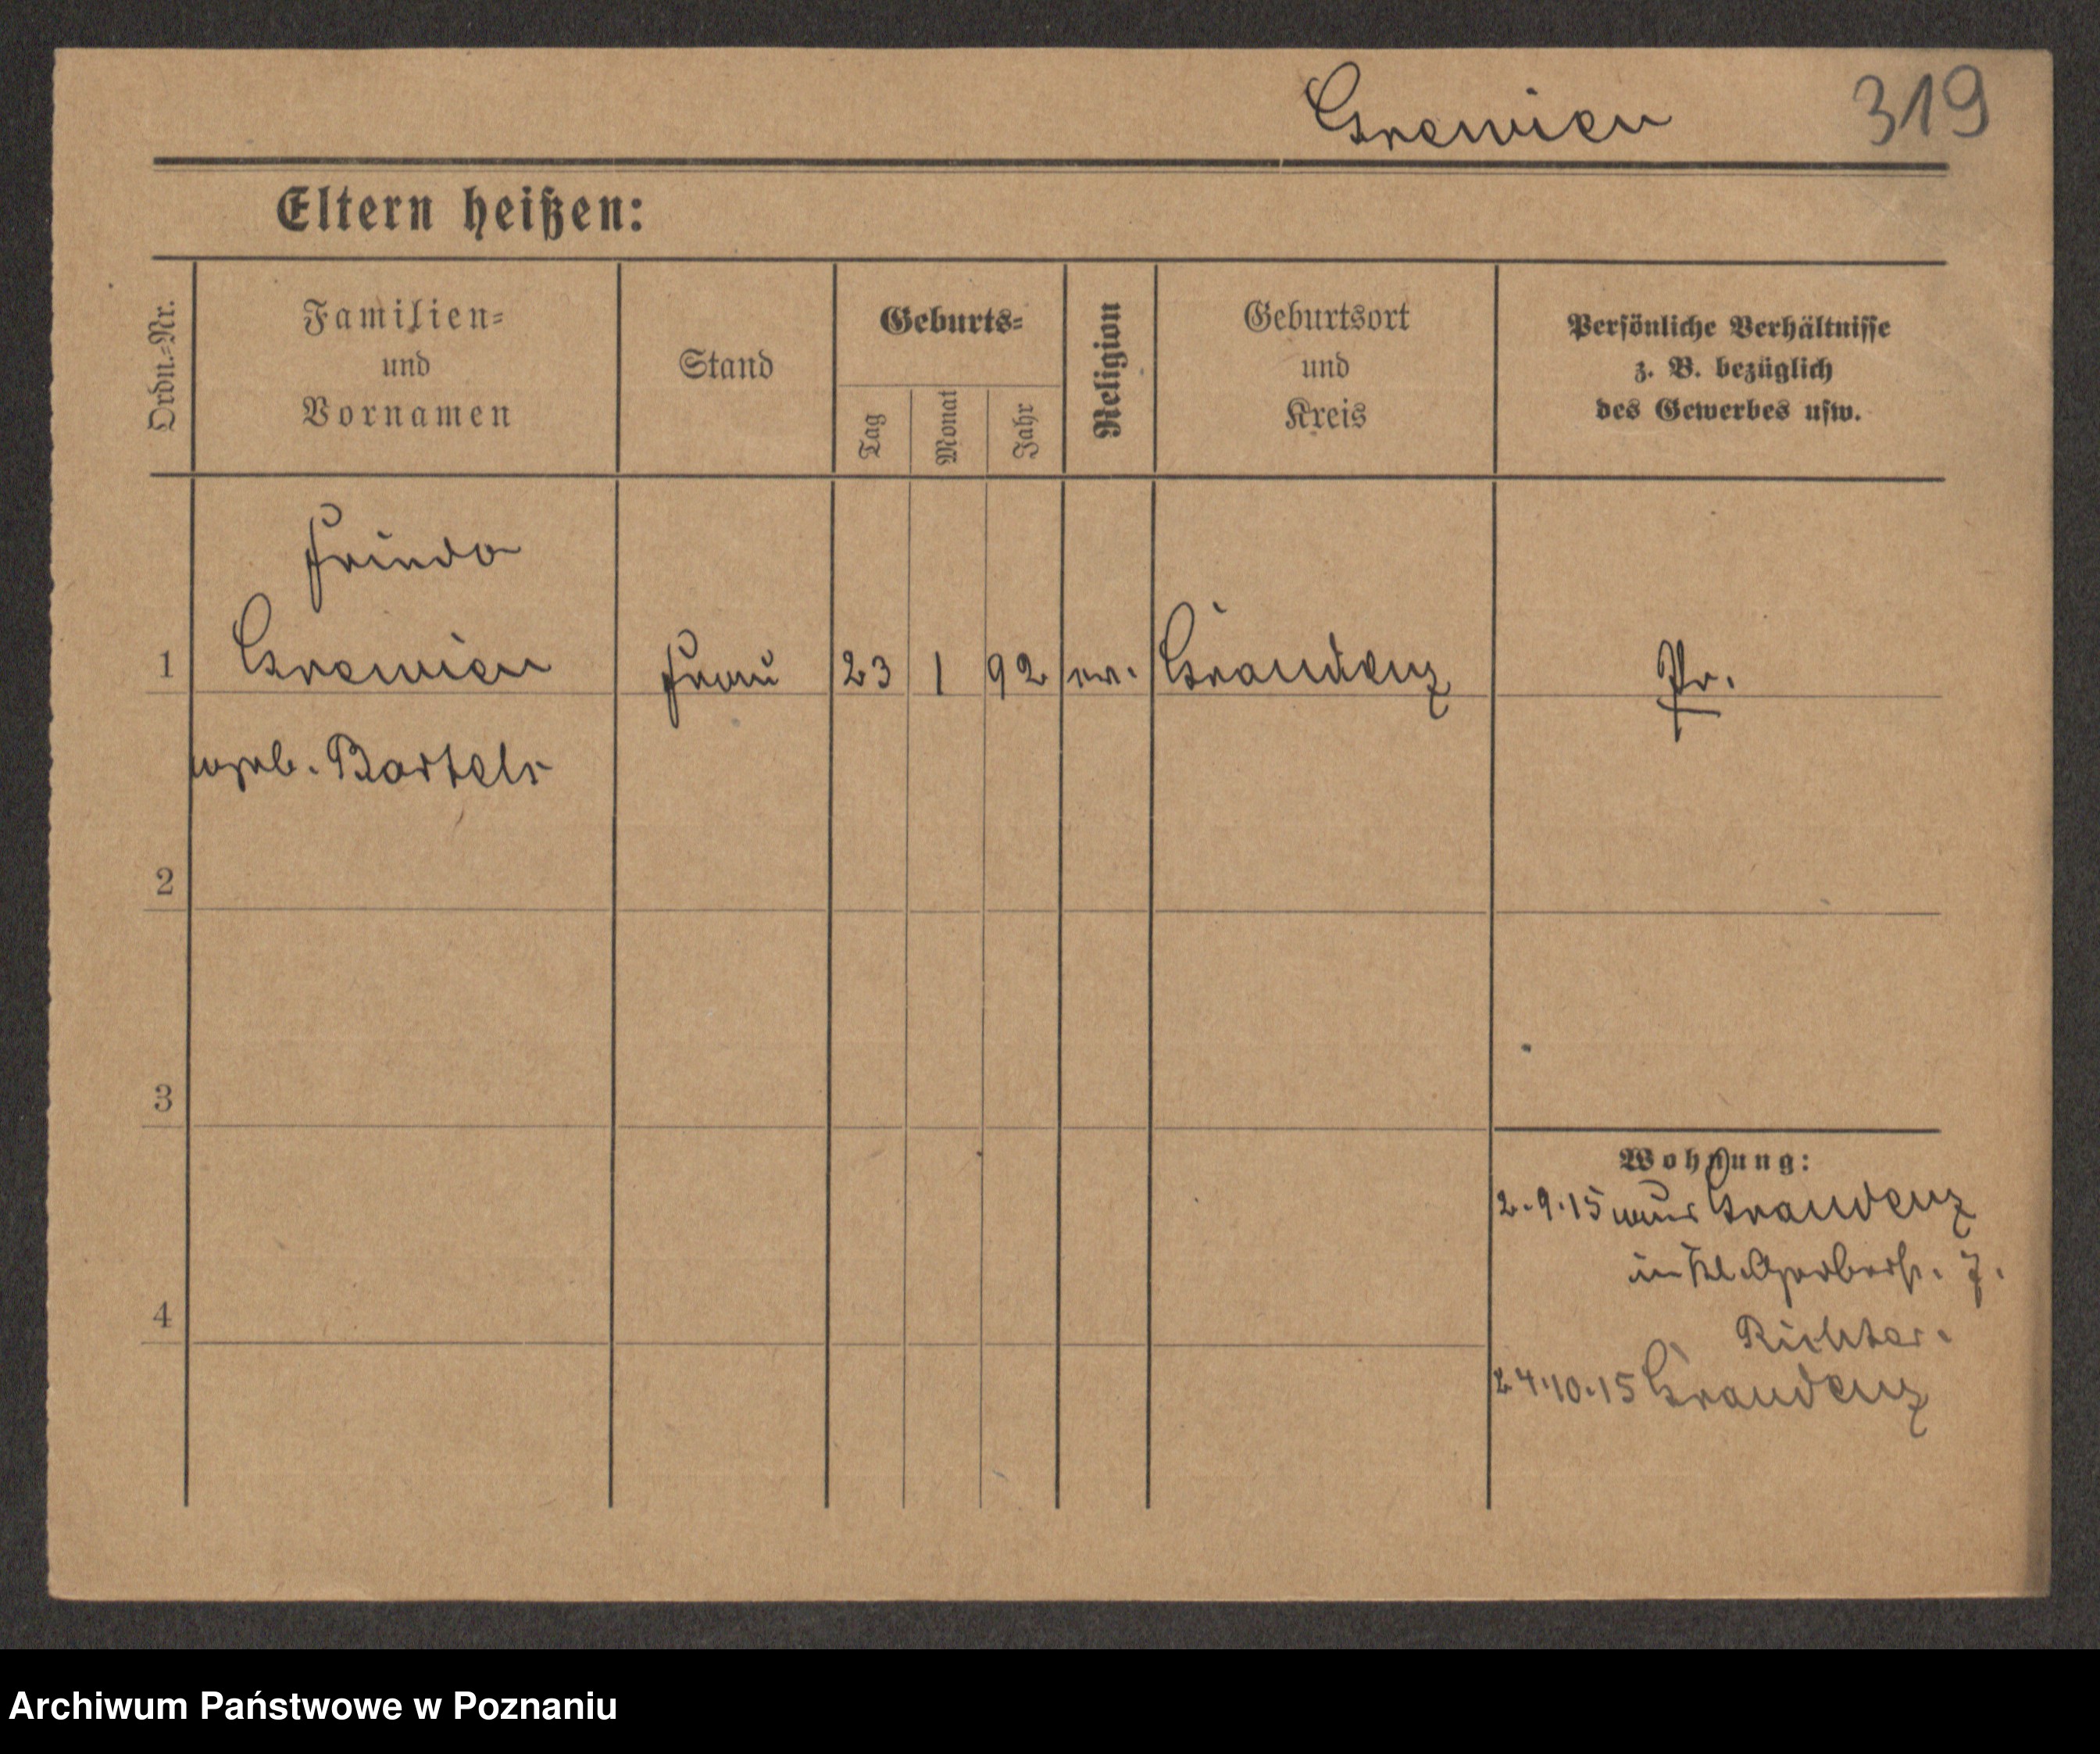 Grewien 319
Eltern heißen:
Ordn.=Nr.
Familien=
und
Vornamen
Stand
Geburts=
Tag
Monat
Jahr
Religion
Geburtsort
und
Kreis
Persönliche Verhältnisse
z. B. bezüglich
des Gewerbes usw.
Frieda
1 Grewien Frau 23 1 92 ev. Graudenz Pr.
geb. Bartels
2
3
4
Wohnung:
2.9.15 aus Graudenz
in Kl. Gerberstr. 7.
Richter.
24.10.15 Graudenz
Archiwum Państwowe w Poznaniu